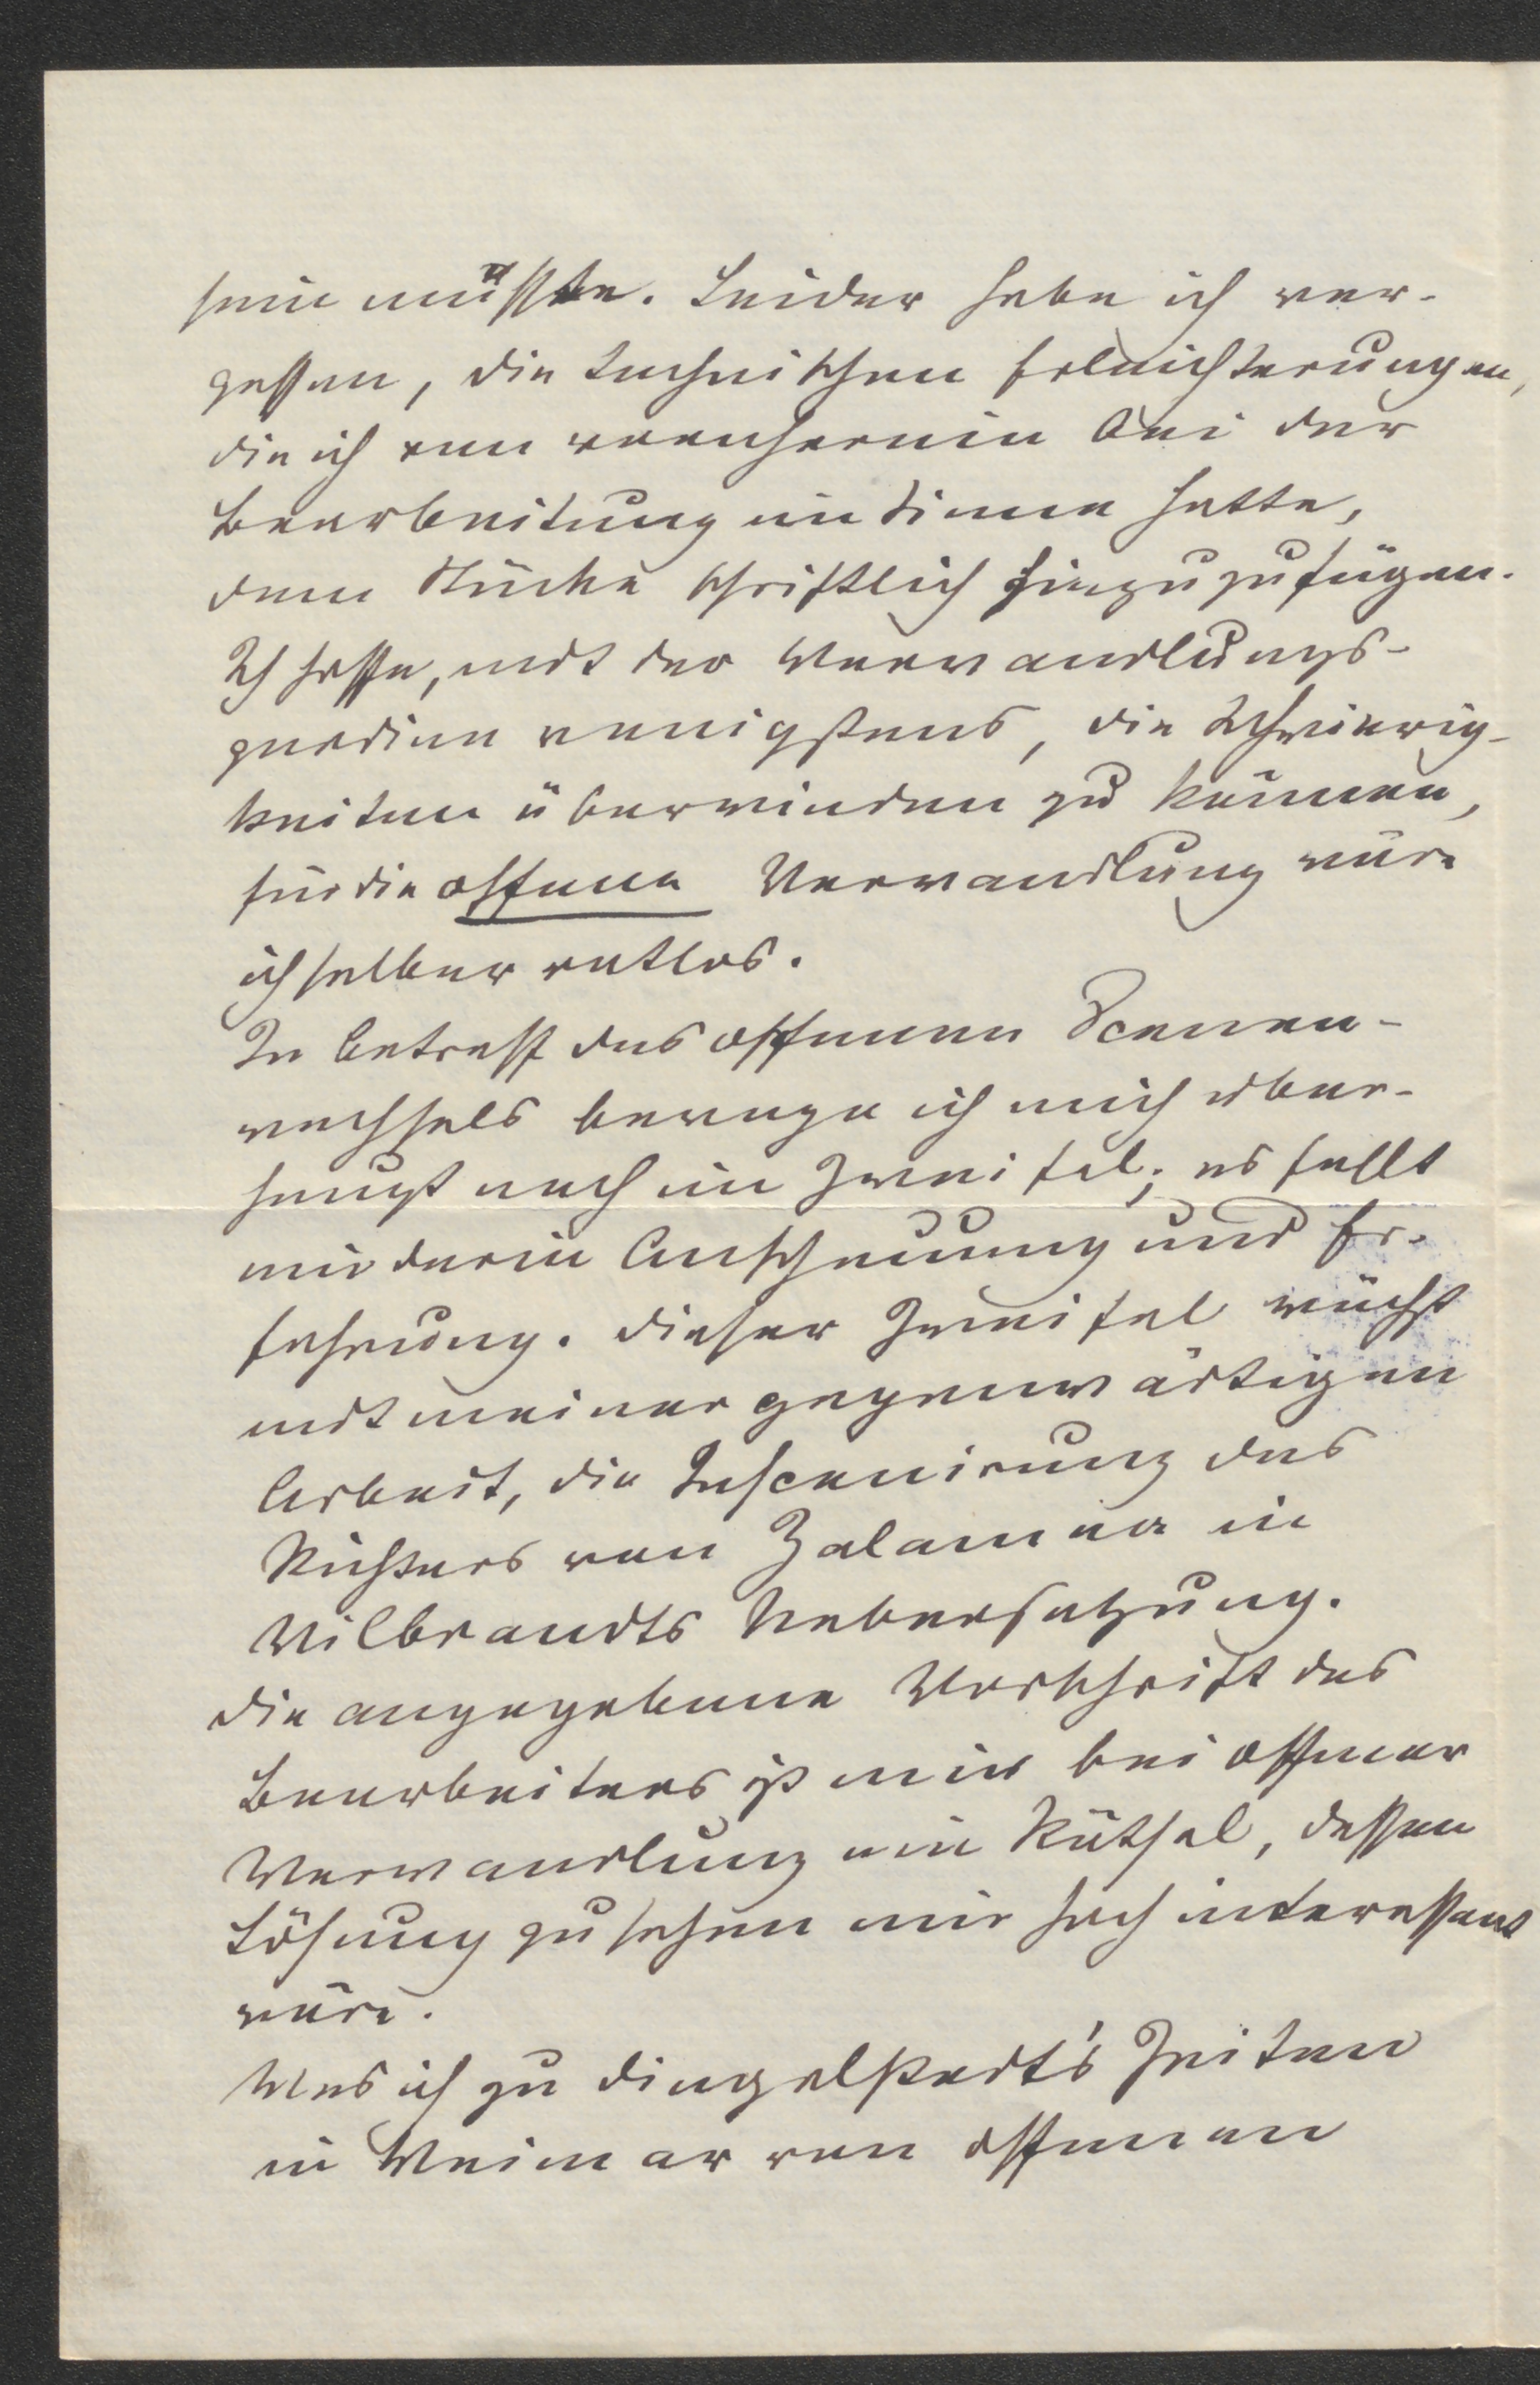 sein müsste. Leider habe ich ver-
gessen, die technischen Erleichterungen,
die ich von vornherein bei der
Bearbeitung im Sinne hatte,
dem Stücke schriftlich hinzuzufügen.
Ich hoffe, mit der Verwandlungs-
gardine wenigstens, die Schwierig-
keiten überwinden zu können,
für die offene Verwandlung wäre
ich selber ratlos.
In betreff des offenen Scenen-
wechsels bewege ich mich über-
haupt noch im Zweifel; es fehlt
mir darin Anschauung und Er-
fahrung. Dieser Zweifel wächst
mit meiner gegenwärtigen
Arbeit, die Inscenirung des
Richters von Zalamea in
Wilbrandts Uebersetzung.
Die angegebene Vorschrift des
Bearbeiters ist mir bei offener
Verwandlung ein Rätsel, dessen
Lösung zu sehen mir hoch interessant
wäre.
Was ich zu Dingelstedt's Zeiten
in Weimar von offenen